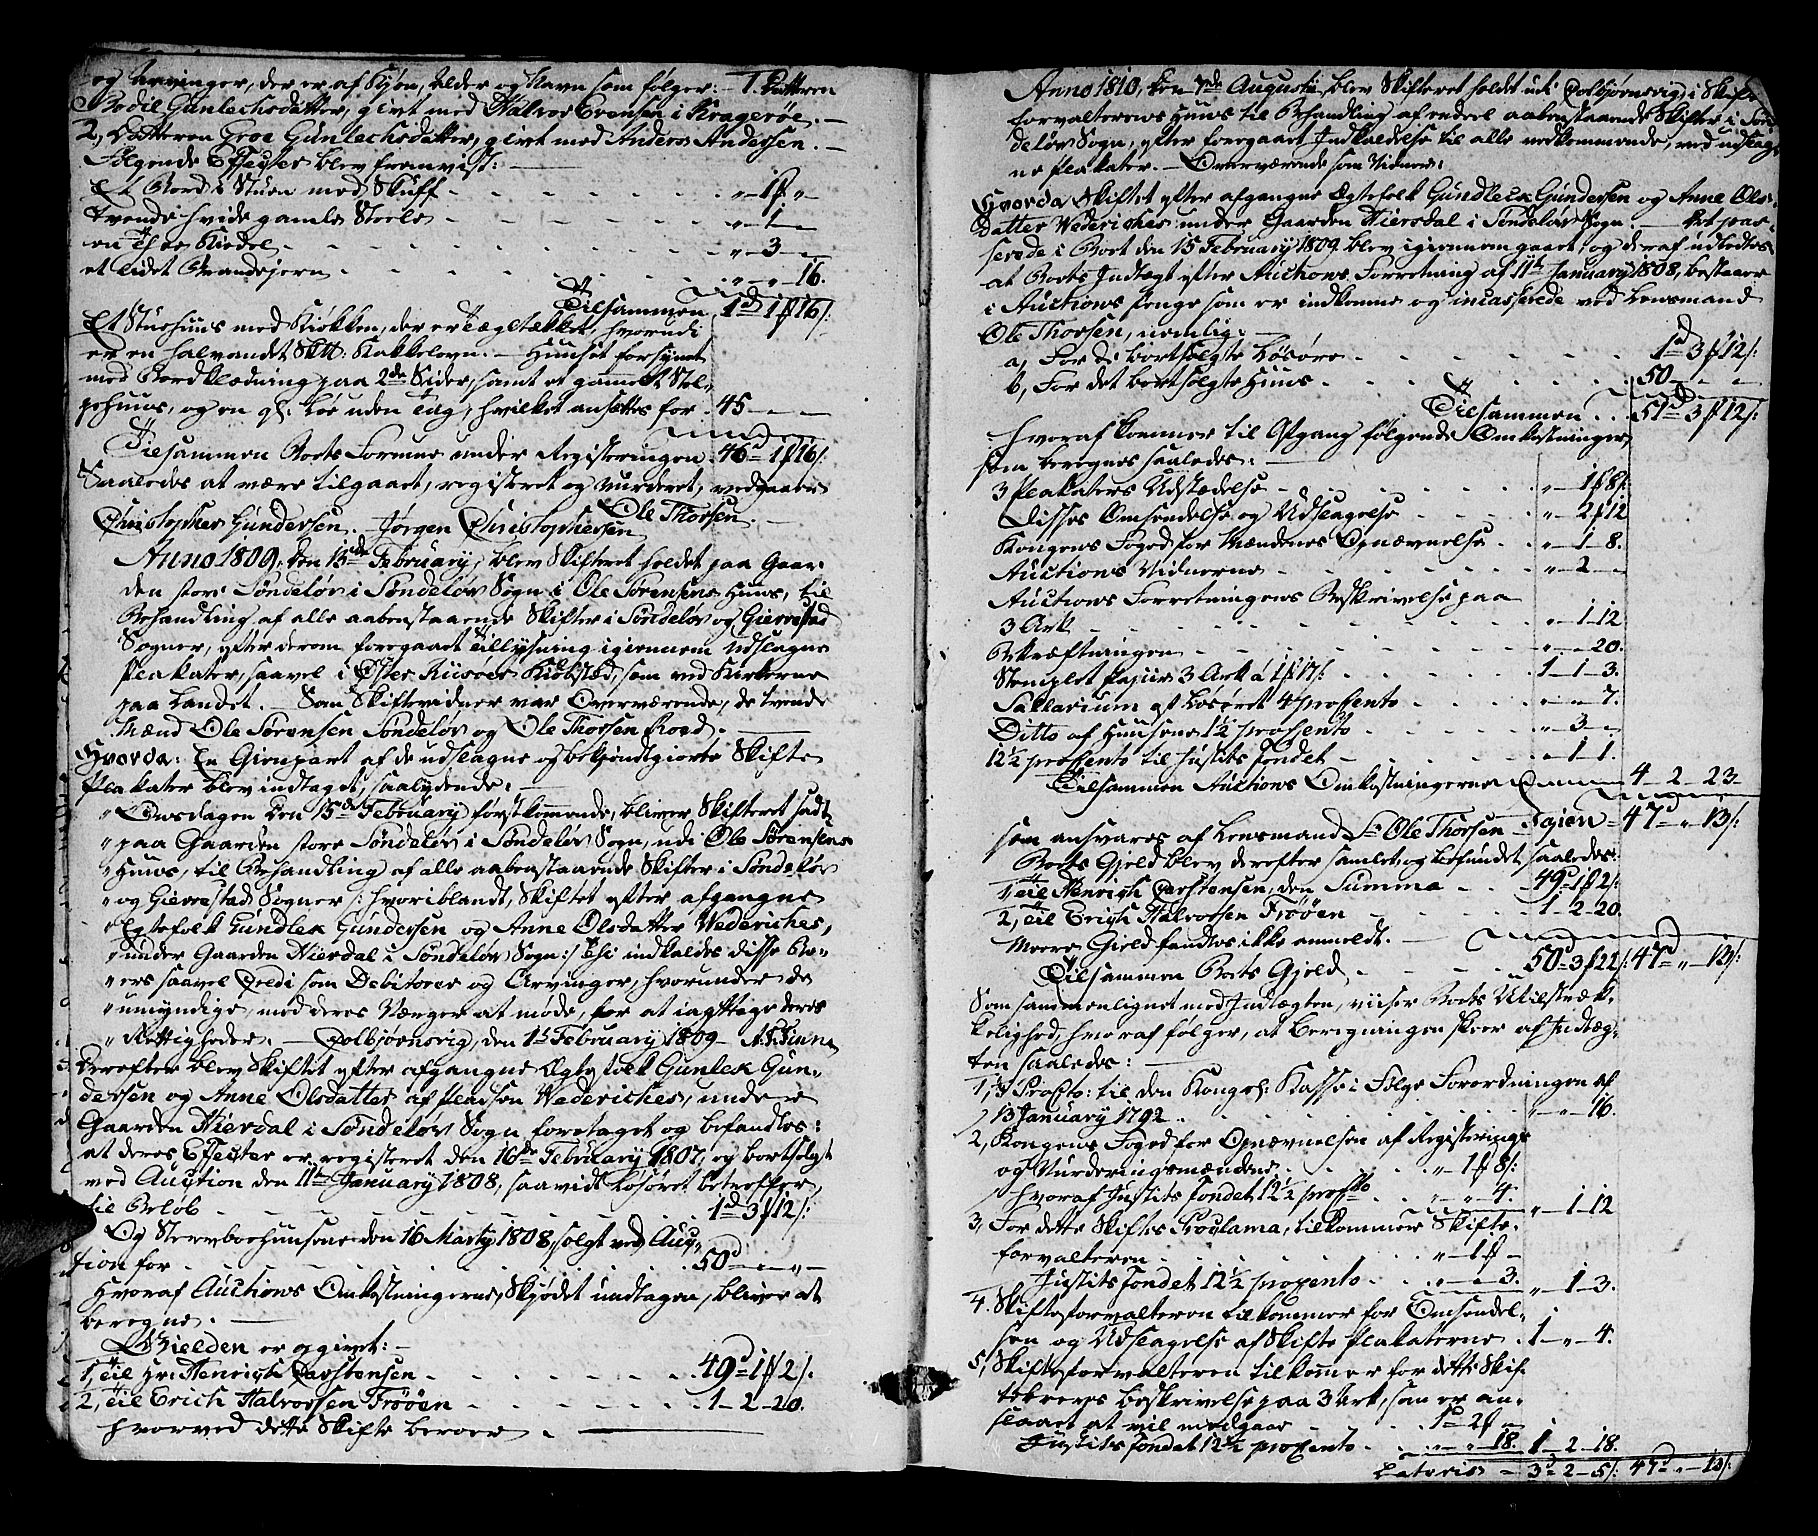 og Arvinger, der er af Kjøn, Alder og Navn som følger: 1. Datteren
Bodil Gunlechsdatter, givt med Halvor Evensen i Kragerøe. —
2, Datteren Groe Gunlechsdatter, givt med Anders Andersen. —
Følgende Effecter blev foreviist: —
Et Bord i Stuen med Skuff - - - „ 1 ß „
tvende hvide gamle Stoele - - - „ 1 —
en Thee Kiedel - - - „ 3 —
et lidet Brandejern - - - „ „ 16.
Tilsammen 1d 1ß 16/:
Et Stuehuus med Kiøkken, der er Tægtækket, hvorudi
er en halvandet Skp: Kakkelovn. — Huuset forsynet
med Bordklædning paa 2de Sider, samt et gammelt Stol-
pehuus, og en gl: Løe uden Tag, hvilket ansættes for 45 — —
Tilsammen Boets Formue under Registeringen 46d 1ß 16/:
Saaledes at være tilgaaet, registeret og vurderet, vedgaaes
Christopher Gundersen. Jørgen Christophersen Ole Thorsen. —
Anno 1809, den 15de February, blev Skifteret holdet paa Gaar-
den store Søndeløv i Søndeløv Sogn i Ole Sørensens Huus, til
Behandling af alle aabenstaaende Skifter i Søndeløv og Gierrestad
Sogner, efter derom foregaaet Tillysning igiennem udslagne
Plakater, saavel i Øster Riisøer Kiøbsted, som ved Kirkerne
paa Landet. — Som Skiftevidner var Overværende, de tvende
Mænd Ole Sørensen Søndeløv og Ole Thorsen Roed. —
Hvorda: En Gienpart af de udslagne og bekjendtgiorte Skifte
Plakater blev indtaget, saalydende: —
„Onsdagen den 15de February førstkommende, bliver Skifteret sadt
„paa Gaarden store Søndeløv i Søndeløv Sogn, udi Ole Sørensens
„Huus, til Behandling af alle aabenstaaende Skifter i Søndeløv
„og Gierrestad Sogner /: hvoriblandt, Skiftet efter afgangne
„Egtefolk Gundlek Gundersen og Anne Olsdatter Wederiches,
„under Gaarden Hierdal i Søndeløv Sogn :/ Thi indkaldes disse Bo-
„ers saavel Credi som Debitorer og Arvinger, hvorunder de
„umyndige, med deres Værger at møde, for at iagttage deres
„Rettigheder. — Colbjørnsvig, den 1te February 1809
Derefter blev Skiftet efter afgangne Egtefolk Gunlek Gun-
dersen og Anne Olsdatter af Pladsen Wederiches, under
Gaarden Hierdal i Søndeløv Sogn foretaget og befandtes:
at deres Effecter er registeret den 16de February 1807, og bortsolgt
ved Auction den 11te January 1808, saavidt Løsøret betreffer,
til Beløb - - - 1d 3ß 12/:
Og Stervboehuusene den 16 Marty 1808, solgt ved Auc-
tion for - - - 50d — „ —
Hvoraf Auctions Omkostningerne, Skjødet undtagen, bliver at
beregne. —
Gielden er opgivet: —
1, Til Hr: Henrich Carstensen - - - 49d 1ß 2/:
2, Til Erich Halvorsen Frøøen - - - 1 — 2 — 20.
hvorved dette Skifte beroer. —
Anno 1810, den 7de Augusti, blev Skifteret holdet udi Colbjørnsvig, i Skifte-
forvalterens Huus til Behandling af endeel aabenstaaende Skifter i Søn-
deløv Sogn, efter foregaaet Indkaldelse til alle vedkommende, ved udslag-
ne Plakater. — Overværende som Vidner:
Hvorda Skiftet efter afgangne Egtefolk Gundleck Gundersen og Anne Ols-
datter Wederiches under Gaarden Hiersdal i Søndeløv Sogn. — Det pas-
serede i Boet den 15 February 1809 blev igiennemgaaet, og deraf udledtes
at Boets Indtægt efter Auctions Forretning af 11te January 1808, bestaaer
i Auctions penge som er indkomne og incasserede ved Lensmand
Ole Thorsen, nemlig: —
a, For de bortsolgte Løsøre - - - 1d 3ß 12/:
b, For det bortsolgte Huus - - - 50 — „ —
Tilsammen - 51d 3ß 12/:
hvoraf kommer til Afgang følgende Omkostninger
som beregnes saaledes: —
3 Plakaters Udstædelse - - - „ 1ß 8/:
Disses Omsendelse og Udslagelse - - - „ 2ß 12
Kongens Foged for Mændenes Opnævnelse - „ 1 — 8.
Auctions Vidnerne - - - „ 2 —
Auctions Forretningens Beskrivelse paa
3 Ark - - - „ 1 — 12
Bekræftningen - - - „ „ 20.
Stemplet Papiir 3 Ark á 1ß 17/: - - - 1 — 1 — 3.
Sallarium af Løsøret 4 proCento - - - „ „ 7.
Ditto af Huusene 1½ proCento - - - „ 3 —
12½ proCento til Justits Fondet - - - „ 1 1.
Tilsammen Auctions Omkostningerne 4 — 2 — 23
som ansvares af Lensmand Sr Ole Thorsen — Igien 47d „ 13/:
Boets Gjeld blev derefter samlet og befundet saaledes:
1, Til Henrich Carstensen, den Summa - - 49d 1ß 2/:
2, Til Erich Halvorsen Frøøen - 1 — 2 — 20.
Meere Gield fandtes ikke anmeldt. —
Tilsammen Boets Gjeld - - - 50d 3ß 22/: 47d „ 13/:
Som sammenlignet med Indtægten, viiser Boets Utilstræk-
kelighed, hvoraf følger, at Beregningen skeer af Indtæg-
ten saaledes: —
1, ⅓ ProCto: til den Kongel: Kasse i Følge Forordningen af
13 January 1792 - - - „ „ 16.
2, Kongens Foged for Opnævnelsen af Registerings
og Vurderingsmændene - - - „ 1ß 8/:
hvoraf Justits Fondet 12½ proCto - - „ „ 4. „ 1 — 12
3, For dette Skiftes Proclama, tilkommer Skifte-
forvalteren - - - „ 1ß —
Justits Fondet 12½ proCento - - „ „ 3. „ 1 — 3.
4. Skifteforvalteren tilkommer for Omsendel-
sen og Udslagelse af Skifte Plakaterne - 1 — „ 4.
5, Skifteforvalteren tilkommer for dette Skif-
tebrevs Beskrivelse paa 3 Ark, som er an-
slaaet at vil medgaae - - - 1d 2ß —
Justits Fondet 12½ proCento - - „ „ 18. 1 — 2 — 18.
Lateris — 3d 2 — 5/: 47d „ 13/: